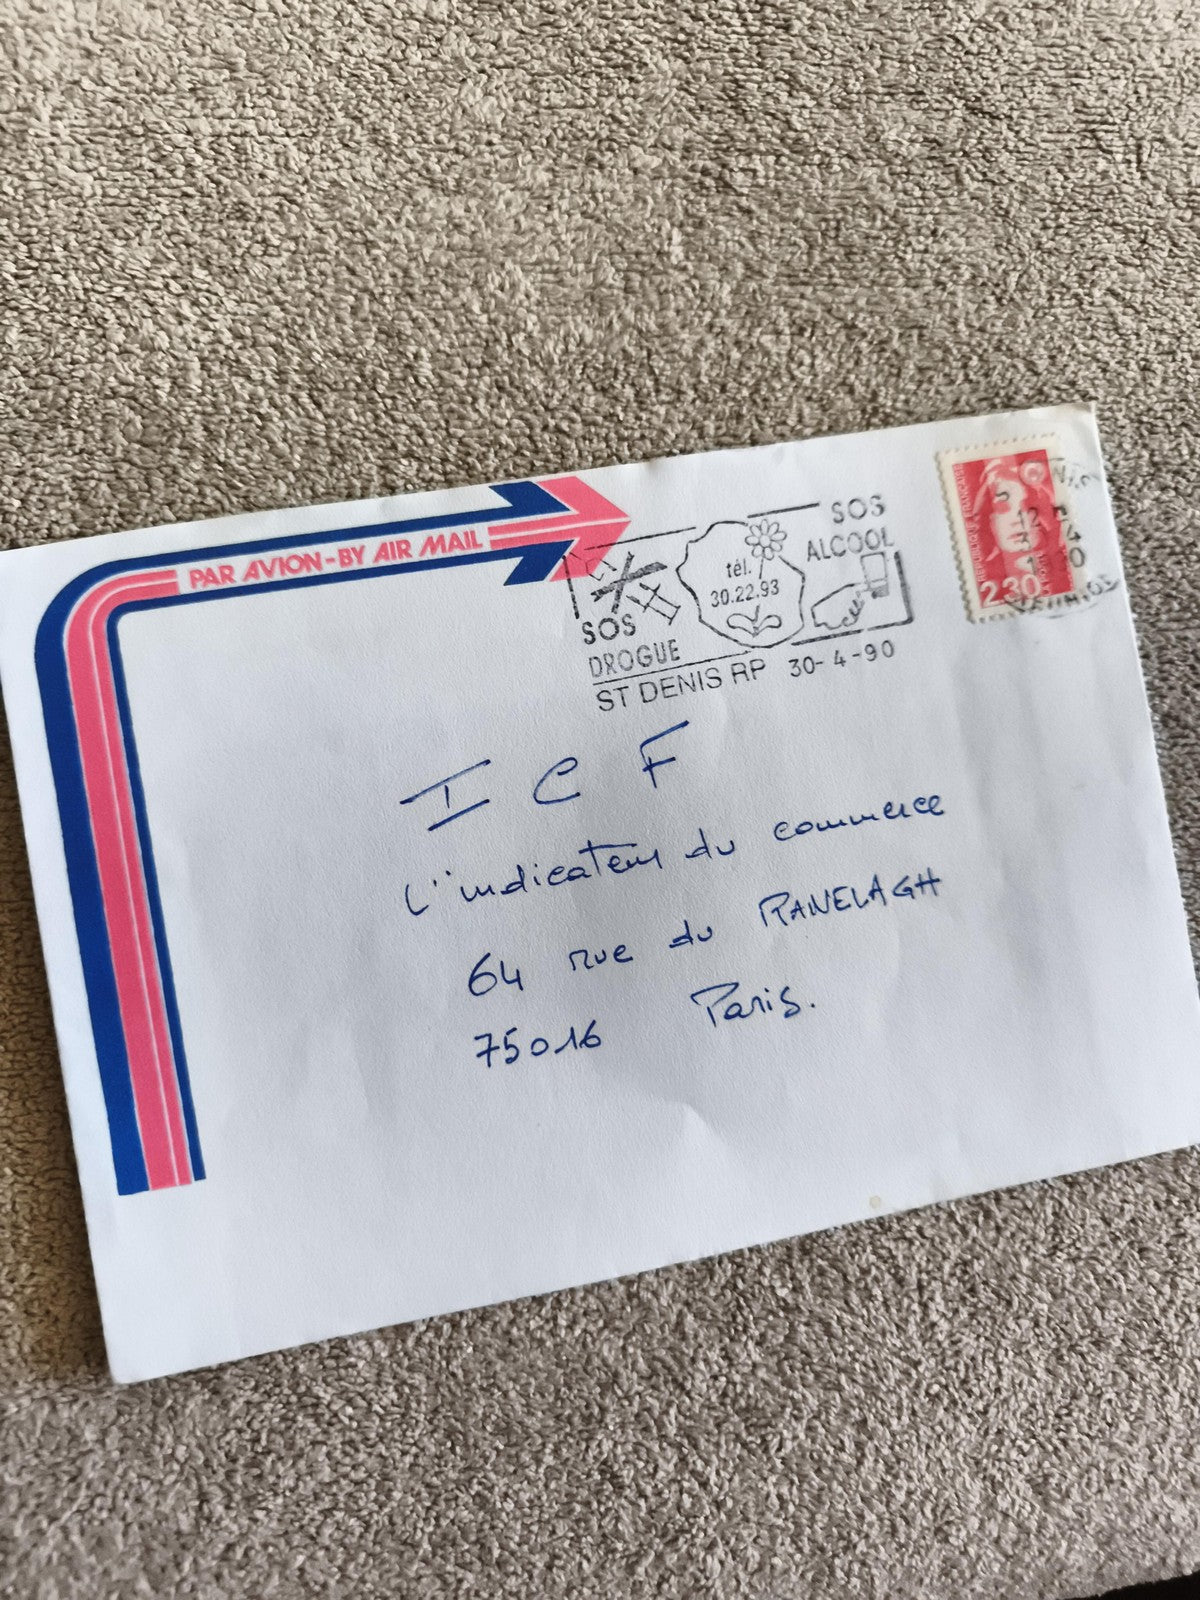 PAR AVION-BY AIR MAIL
SOS
DROGUE
tél.
30.22.93
SOS
ALCOOL
ST DENIS RP 30-4-90
2.30
I C F
L'indicateur du commerce
64 rue du RANELAGH
75016 Paris.